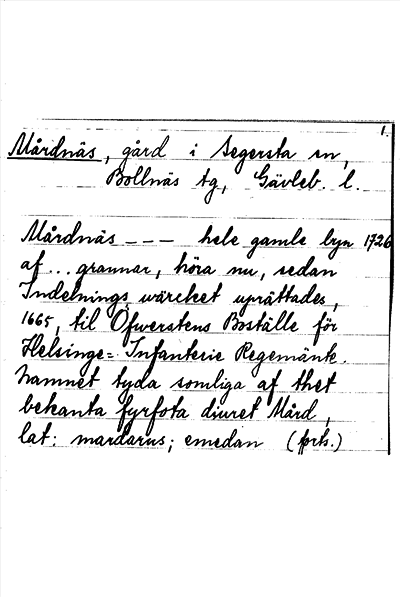 1.
Mårdnäs, gård i Segersta sn,
Bollnäs tg, Gävleb. l.
Mårdnäs --- hele gamle byn 1726
af ... grannar, höra nu, sedan
Indelnings wärcket uprättades,
1665, til Öfwerstens Boställe för
Helsinge= Infanterie Regemänte.
Namnet tyda somliga af thet
bekanta fyrfota diuret Mård,
lat: mardarus; emedan (forts.)